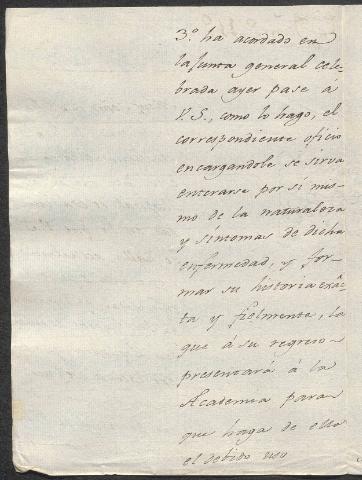 3.º ha acordado en
la Junta general cele-
brada ayer pase á
V.S., como lo hago, el
correspondiente oficio
encargandole se sirva
enterarse por si mis-
mo de la naturaleza
y síntomas de dicha
enfermedad, y for-
mar su historia exâc-
ta y fielmente, la
que á su regreso
presentará á la
Academia para
que haga de ella
el debido uso